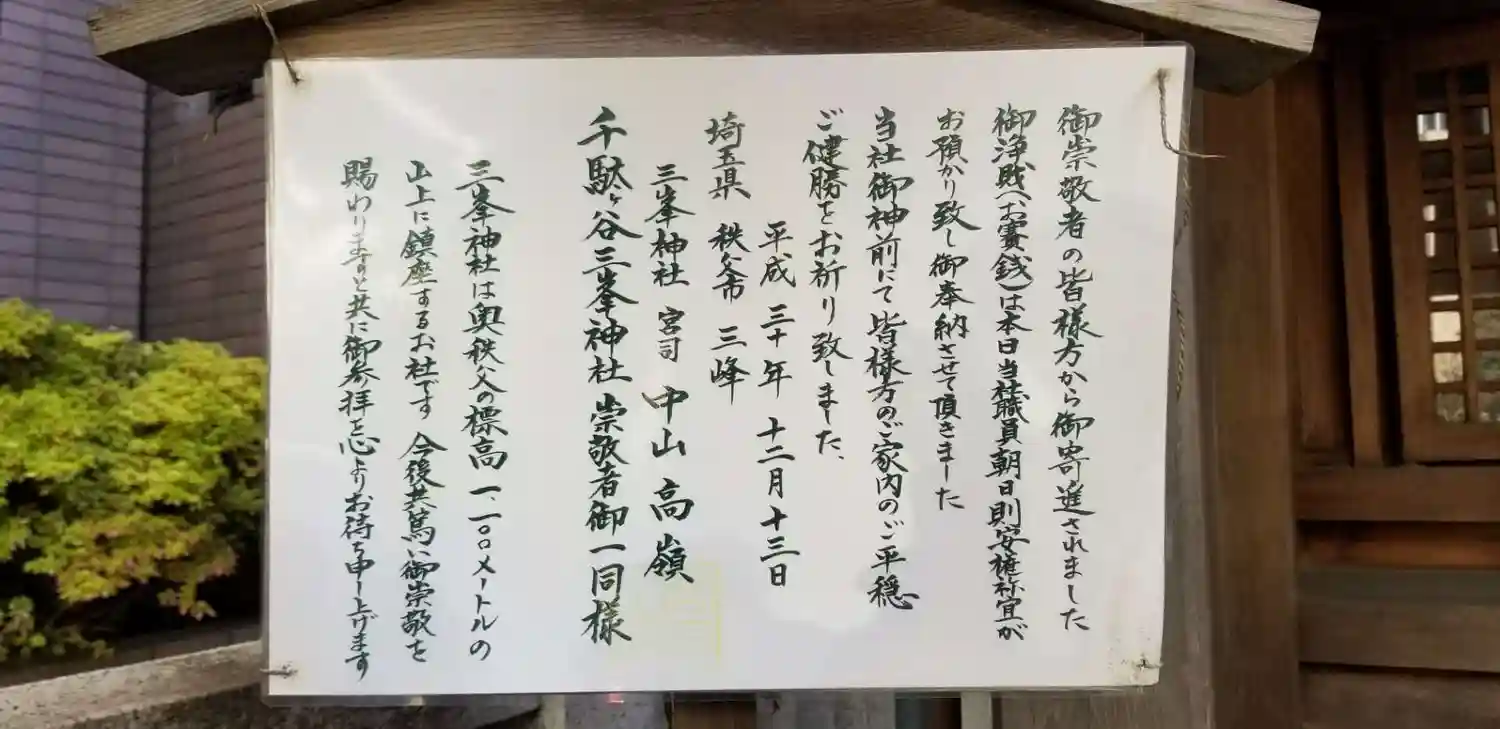 御崇敬者の皆様方から御寄進されました
御浄財(お賽銭)は本日当社職員朝日則安権祢宜が
お預かり致し御奉納させて頂きました
当社御神前にて皆様方のご家内のご平穏
ご健勝をお祈り致しました、
平成 三十年 十二月十三日
埼玉県 秩父市 三峰
三峯神社 宮司 中山高嶺
千駄ヶ谷三峯神社 崇敬者御一同様
三峯神社は奥秩父の標高一、一〇〇メートルの
山上に鎮座するお社です 今後共篤い御崇敬を
賜わりますと共に御参拝を心よりお待ち申し上げます